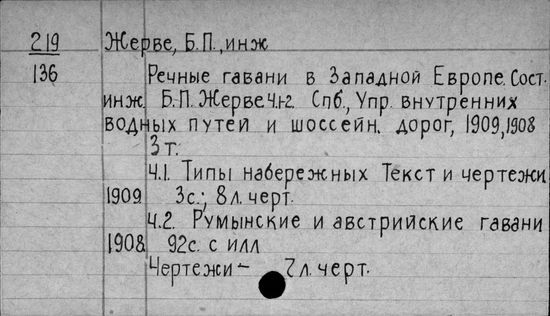 219 Жерве, Б.П., инж
136 Речные гавани в Западной Европе. Сост.
инж. Б.П. Жерве Ч.1-2. Спб., Упр. внутренних
водных путей и шоссейн. дорог, 1909, 1908
3 т.
Ч.1. Типы набережных Текст и чертежи
1909 3с.; 8 л. черт.
Ч.2. Румынские и австрийские гавани
1908 92с. с илл
Чертежи – 7 л. черт.